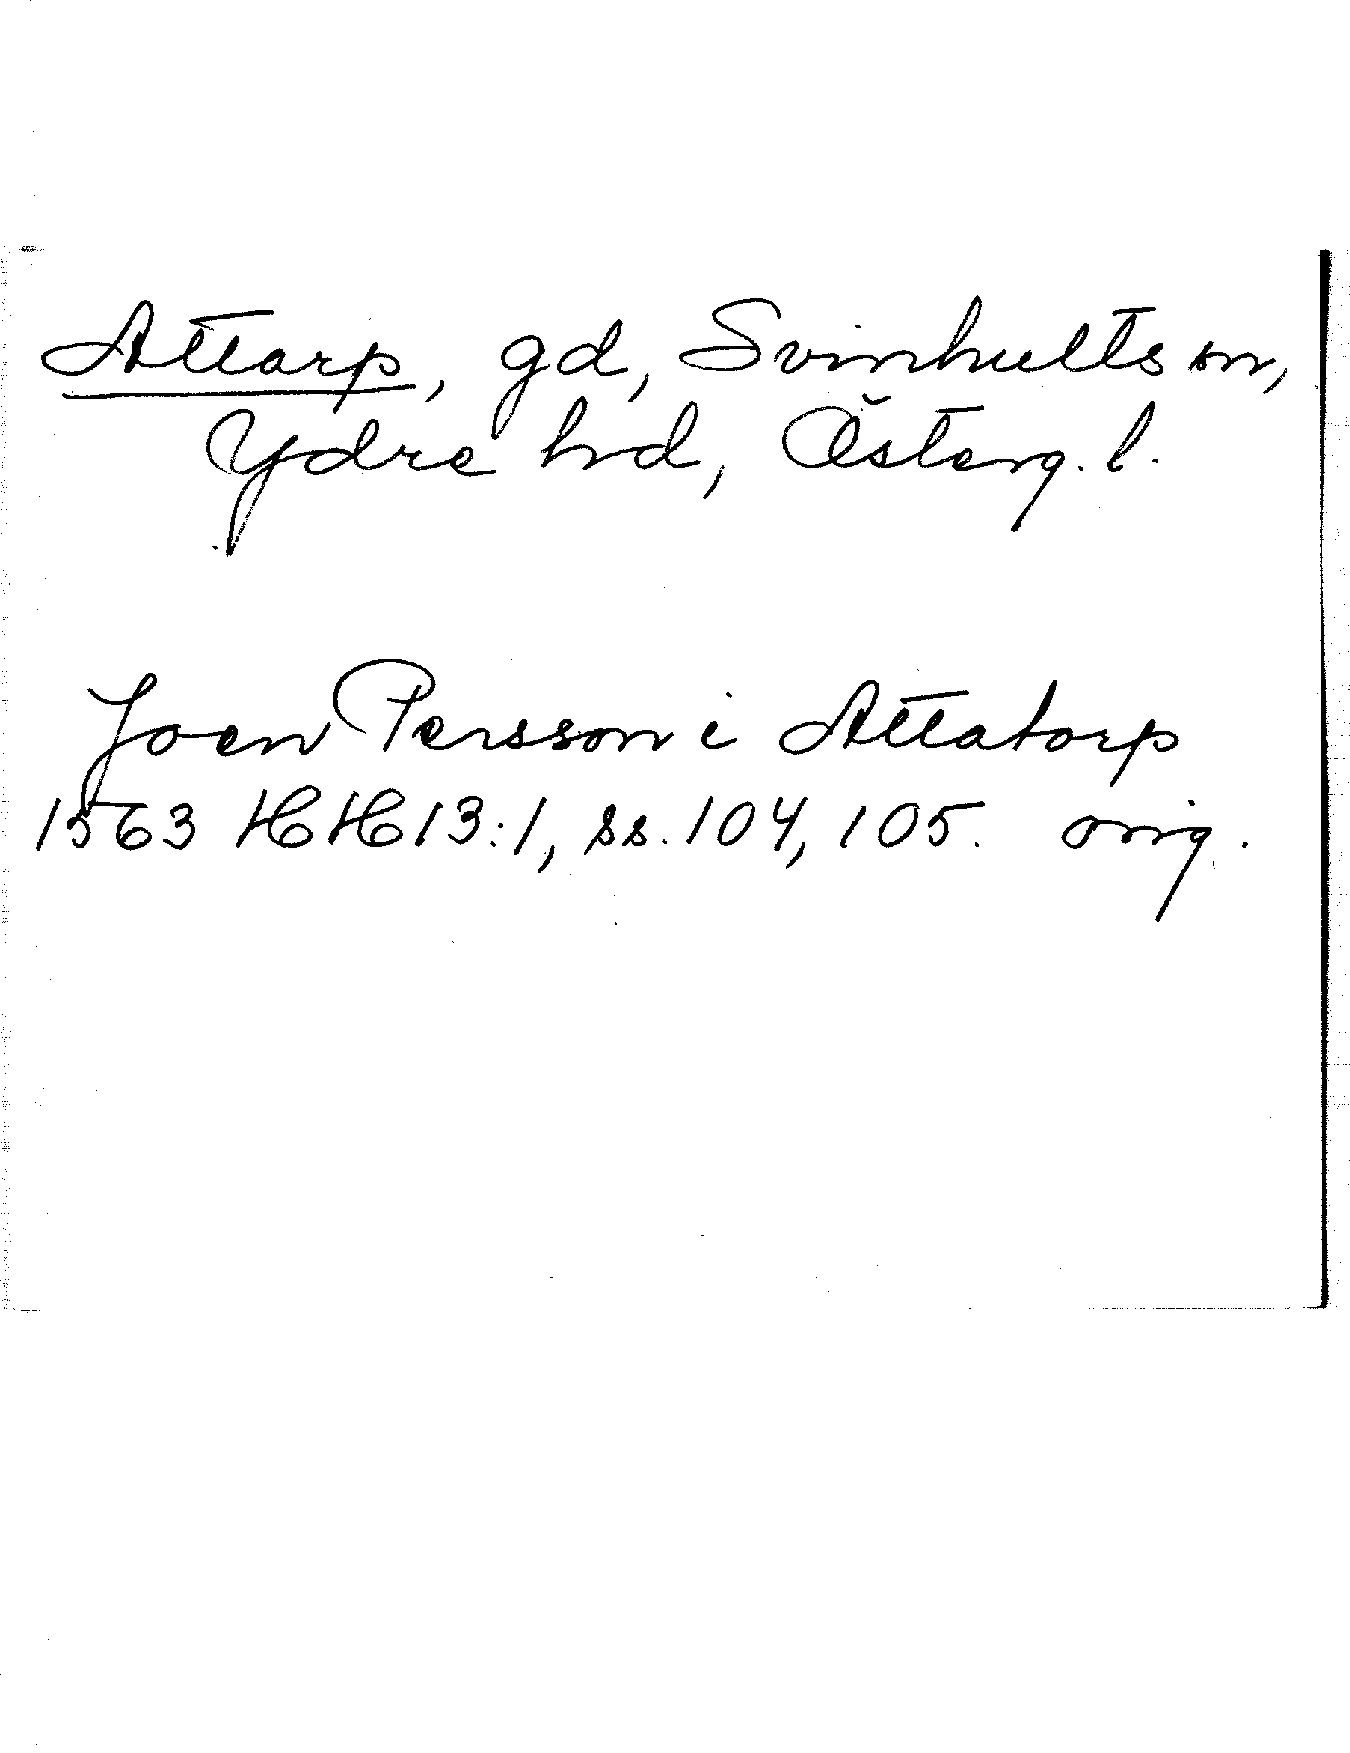 Attarp, gd, Svinhults sn,
Ydre hd, Österg. l.
Joen Persson i Attatorp
1563 HH 13:1, ss. 104, 105. orig.